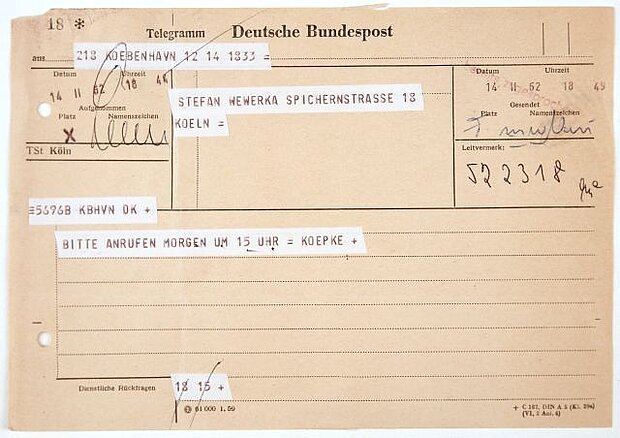 18 * Telegramm Deutsche Bundespost
aus 218 KOEBENHAVN 12 14 1833 =
Datum Uhrzeit
14 II 62 18 44
Aufgenommen
Platz Namenszeichen
TSt Köln
STEFAN WEWERKA SPICHERNSTRASSE 18
KOELN =
Datum Uhrzeit
14 II 62 18 49
Gesendet
Platz Namenszeichen
Leitvermerk:
522318
=5696B KBHVN DK +
BITTE ANRUFEN MORGEN UM 15 UHR = KOEPKE +
Dienstliche Rückfragen 18 15 +
61 000 1. 59
+ C 187, DIN A 5 (Kl. 29a)
(VI, 2 Anl. 6)